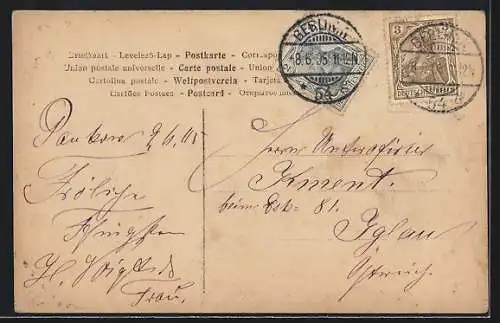 Briefkaart - Levelező-Lap - Postkarte - Correspon
Union postale universelle - Carte postale - Union
Cartolina postale - Weltpostverein - Tarjeta
Cartões Postaes - Postcard -
BERLIN
8.6.05.11-12N
64
3
Pankow 9/6.05
Fröliche
Pfingsten
H. Voigt &
Frau.
Herrn Unteroffizier
Kment.
beim 81.
Iglau
Östreich.